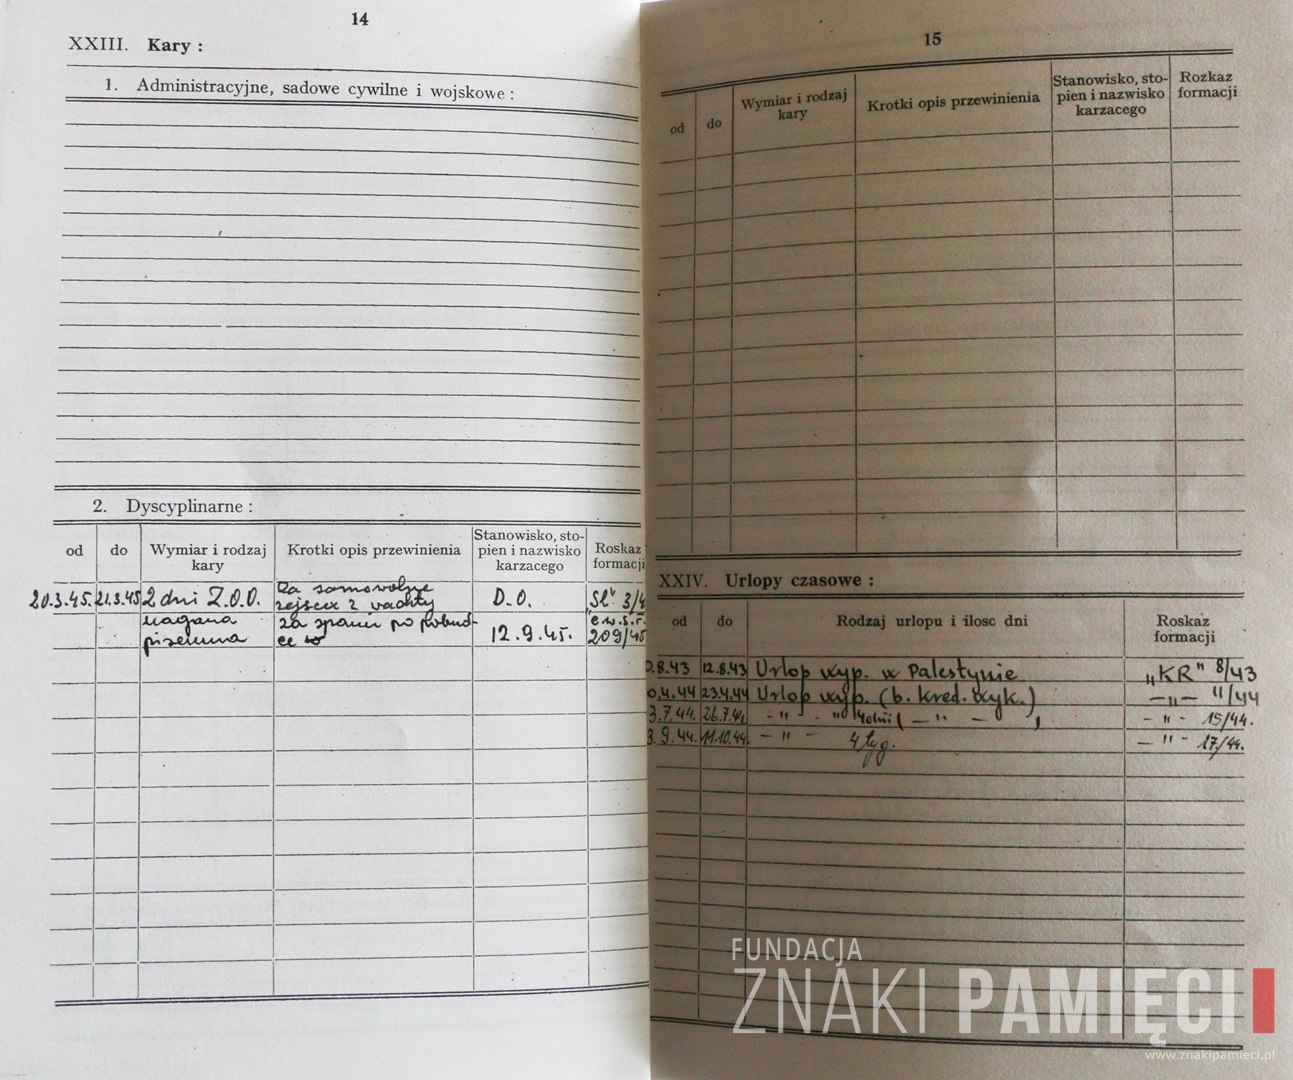 14
XXIII. Kary :
1. Administracyjne, sadowe cywilne i wojskowe :
2. Dyscyplinarne :
od
do
Wymiar i rodzaj
kary
Krotki opis przewinienia
Stanowisko, sto-
pien i nazwisko
karzacego
Roskaz
formacji
20.3.45.
21.3.45
2 dni Z.O.O.
Za samowolne
zejście z wachty
D.O.
„Sl." 3/4
nagana
pisemna
za spanie po pobud-
ce
12.9.45.
209/45
15
od
do
Wymiar i rodzaj
kary
Krotki opis przewinienia
Stanowisko, sto-
pien i nazwisko
karzacego
Rozkaz
formacji
XXIV. Urlopy czasowe :
od
do
Rodzaj urlopu i ilosc dni
Roskaz
formacji
0.8.43
12.8.43
Urlop wyp. w Palestynie
„KR" 8/43
0.4.44
23.4.44
Urlop wyp. (b. kred. wyk.)
— „ — 11/44
3.7.44.
26.7.44
- " - " 4 dni ( — " — )
- " - 15/44.
3.9.44.
11.10.44.
— " — 4 tyg.
— " - 17/44.
FUNDACJA
ZNAKI PAMIĘCI
www.znakipamieci.pl